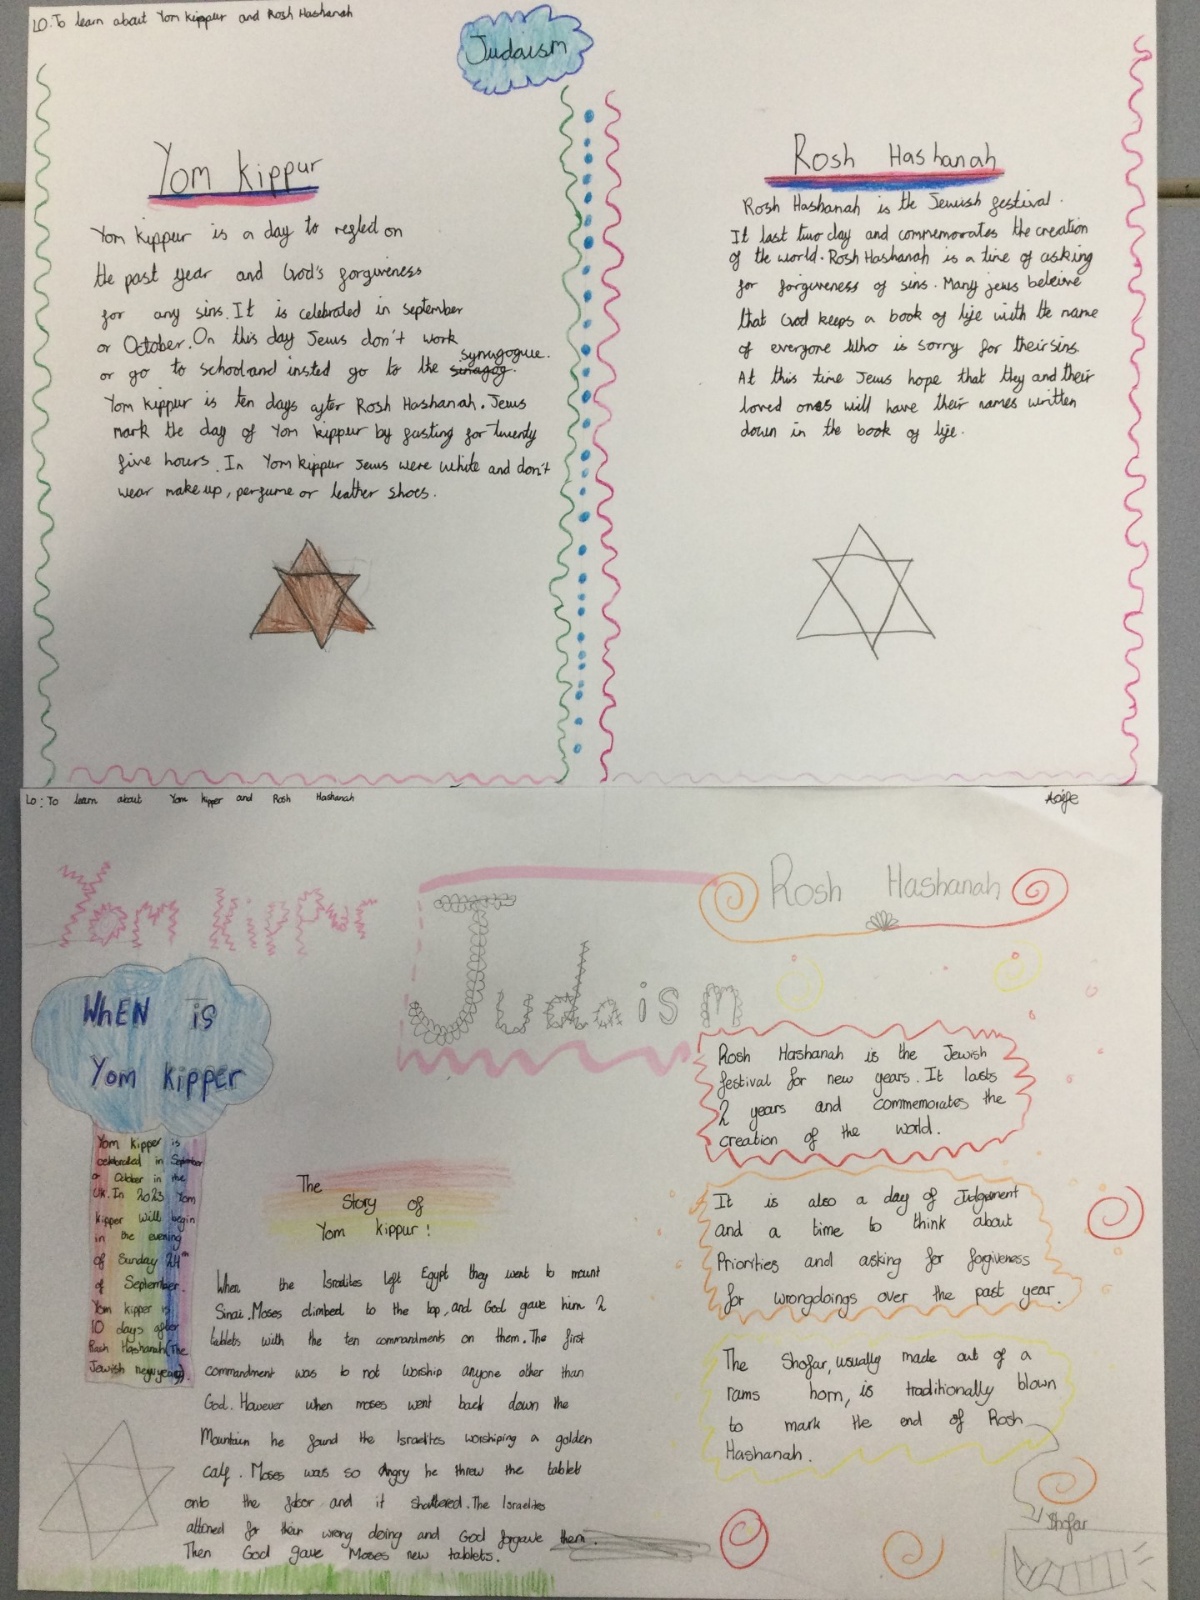 LO: To learn about Yom kippur and Rosh Hashanah
Judaism
Yom kippur
Yom kippur is a day to refled on
the past year and God's forgiveness
for any sins. It is celebrated in september
or October. On this day Jews don't work
synugogue.
or go to school and insted go to the sinagog.
Yom kippur is ten days after Rosh Hashanah. Jews
mark the day of Yom kippur by fasting for twenty
five hours. In Yom kippur Jews were white and don't
wear make up, perfume or leather shoes.
Rosh Hashanah
Rosh Hashanah is the Jewish festival.
It last two day and commemorates the creation
of the world. Rosh Hashanah is a time of asking
for forgiveness of sins. Many jews beleive
that God keeps a book of life with the name
of everyone who is sorry for their sins.
At this time Jews hope that they and their
loved ones will have their names written
down in the book of life.
Lo: To learn about Yom kipper and Rosh Hashanah
Aoife
Yom kipper
Judaism
Rosh Hashanah
WhEN is
Yom kipper
Yom kipper is
celebrated in September
or October in the
UK. In 2023 Yom
kipper will begin
in the evening
of Sunday 24th
of September.
Yom kipper is
10 days after
Rosh Hashanah (The
Jewish new year).
The
Story of
Yom kippur!
When the Israelites left Egypt they went to mount
Sinai. Moses climbed to the top, and God gave him 2
tablets with the ten commandments on them. The first
commandment was to not worship anyone other than
God. However when moses went back down the
Mountain he found the Israelites worshiping a golden
calf. Moses was so Angry he threw the tablets
onto the floor and it shattered. The Israelites
attoned for their wrong doing and God forgave them.
Then God gave Moses new tablets.
Rosh Hashanah is the Jewish
festival for new years. It lasts
2 years and commemorates the
creation of the world.
It is also a day of Judgement
and a time to think about
Priorities and asking for forgiveness
for wrongdoings over the past year.
The Shofar, usually made out of a
rams horn, is traditionally blown
to mark the end of Rosh
Hashanah.
Shofar